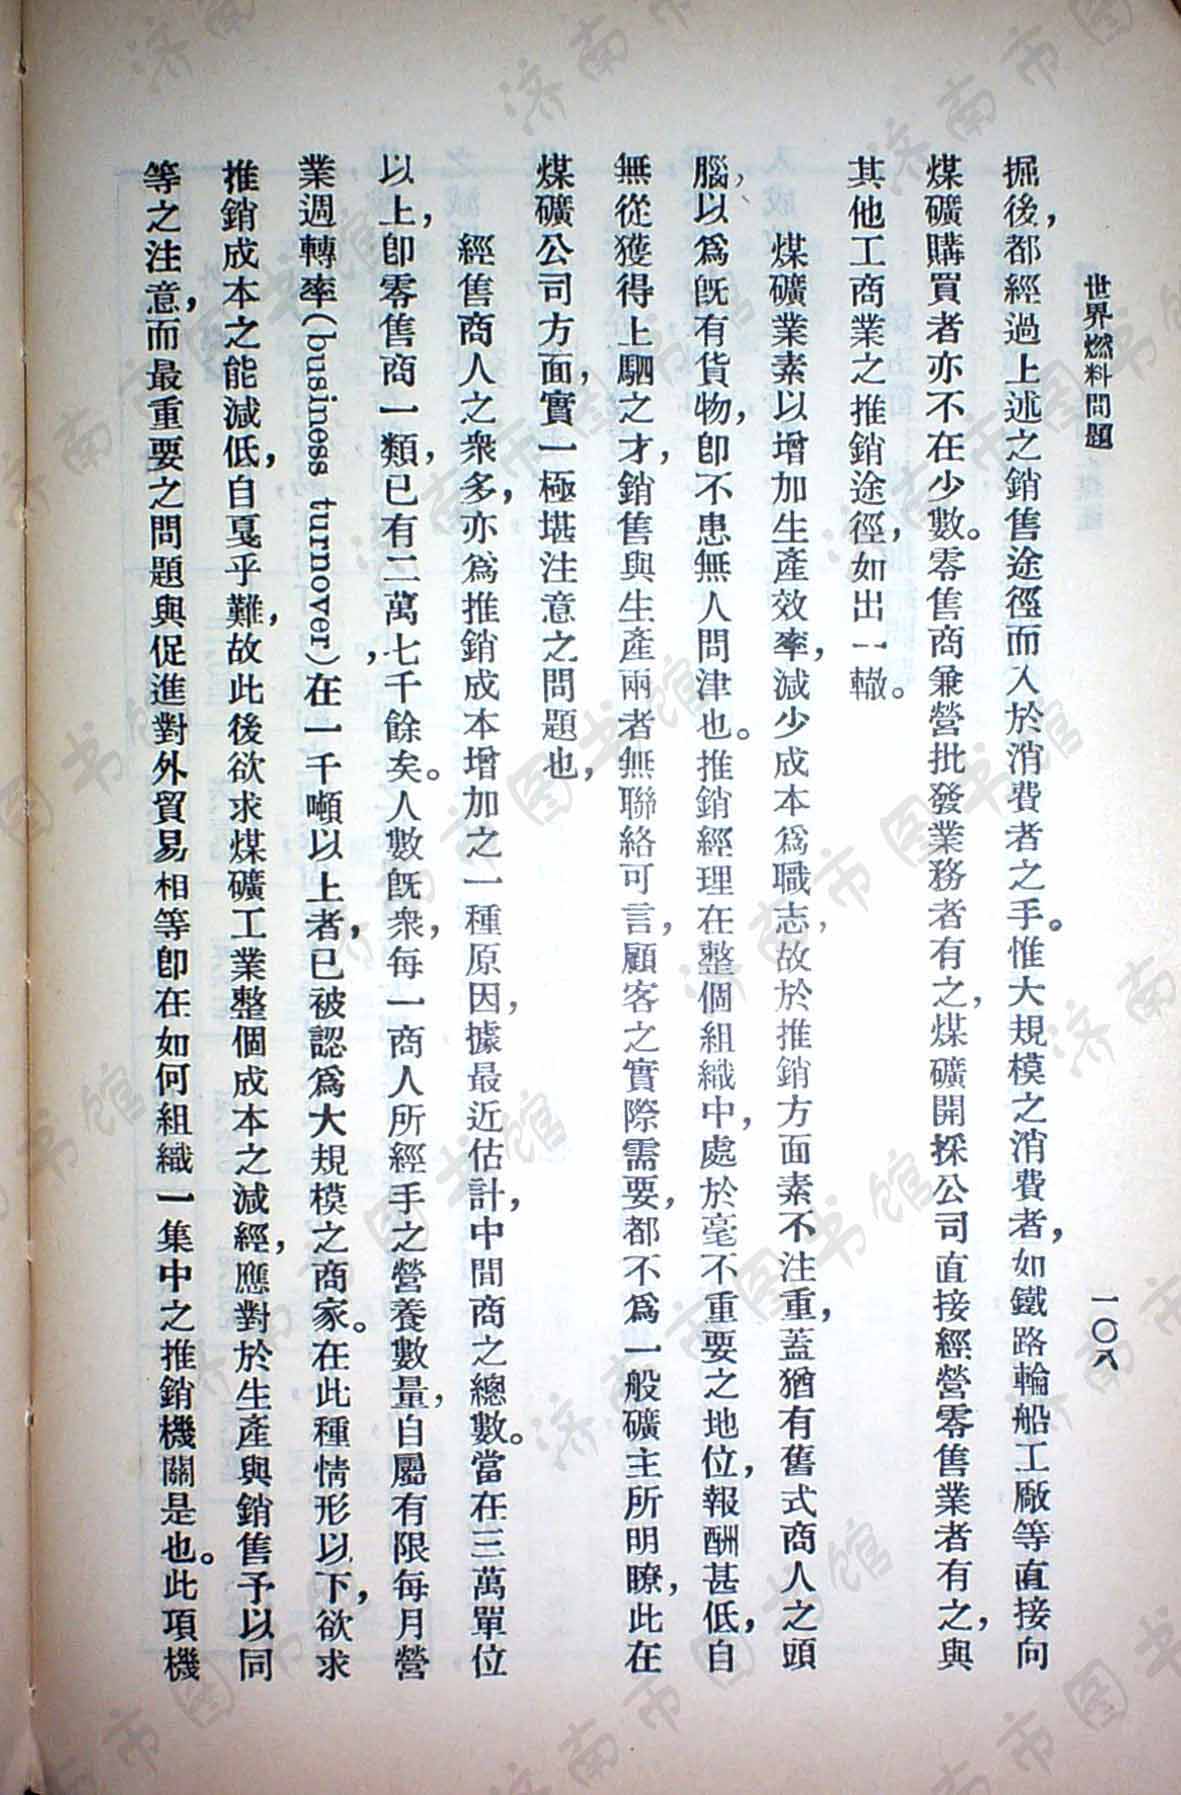 世界燃料問題
一〇八
掘後，都經過上述之銷售途徑而入於消費者之手。惟大規模之消費者，如鐵路輪船工廠等直接向
煤礦購買者亦不在少數。零售商兼營批發業務者有之，煤礦開採公司直接經營零售業者有之，與
其他工商業之推銷途徑，如出一轍。
煤礦業素以增加生產效率，減少成本爲職志，故於推銷方面素不注重，蓋猶有舊式商人之頭
腦，以爲既有貨物，卽不患無人問津也。推銷經理在整個組織中，處於毫不重要之地位，報酬甚低，自
無從獲得上駟之才，銷售與生產兩者無聯絡可言，顧客之實際需要，都不爲一般礦主所明瞭，此在
煤礦公司方面，實一極堪注意之問題也，
經售商人之衆多，亦爲推銷成本增加之一種原因，據最近估計，中間商之總數。當在三萬單位
以上，卽零售商一類，已有二萬七千餘矣。人數既衆，每一商人所經手之營養數量，自屬有限每月營
業週轉率(business turnover)在一千噸以上者，已被認爲大規模之商家。在此種情形以下，欲求
推銷成本之能減低，自戛乎難，故此後欲求煤礦工業整個成本之減經，應對於生產與銷售予以同
等之注意，而最重要之問題與促進對外貿易相等卽在如何組織一集中之推銷機關是也。此項機
济南市图书馆
济南市图书馆
济南市图书馆
济南市图书馆
济南市图书馆